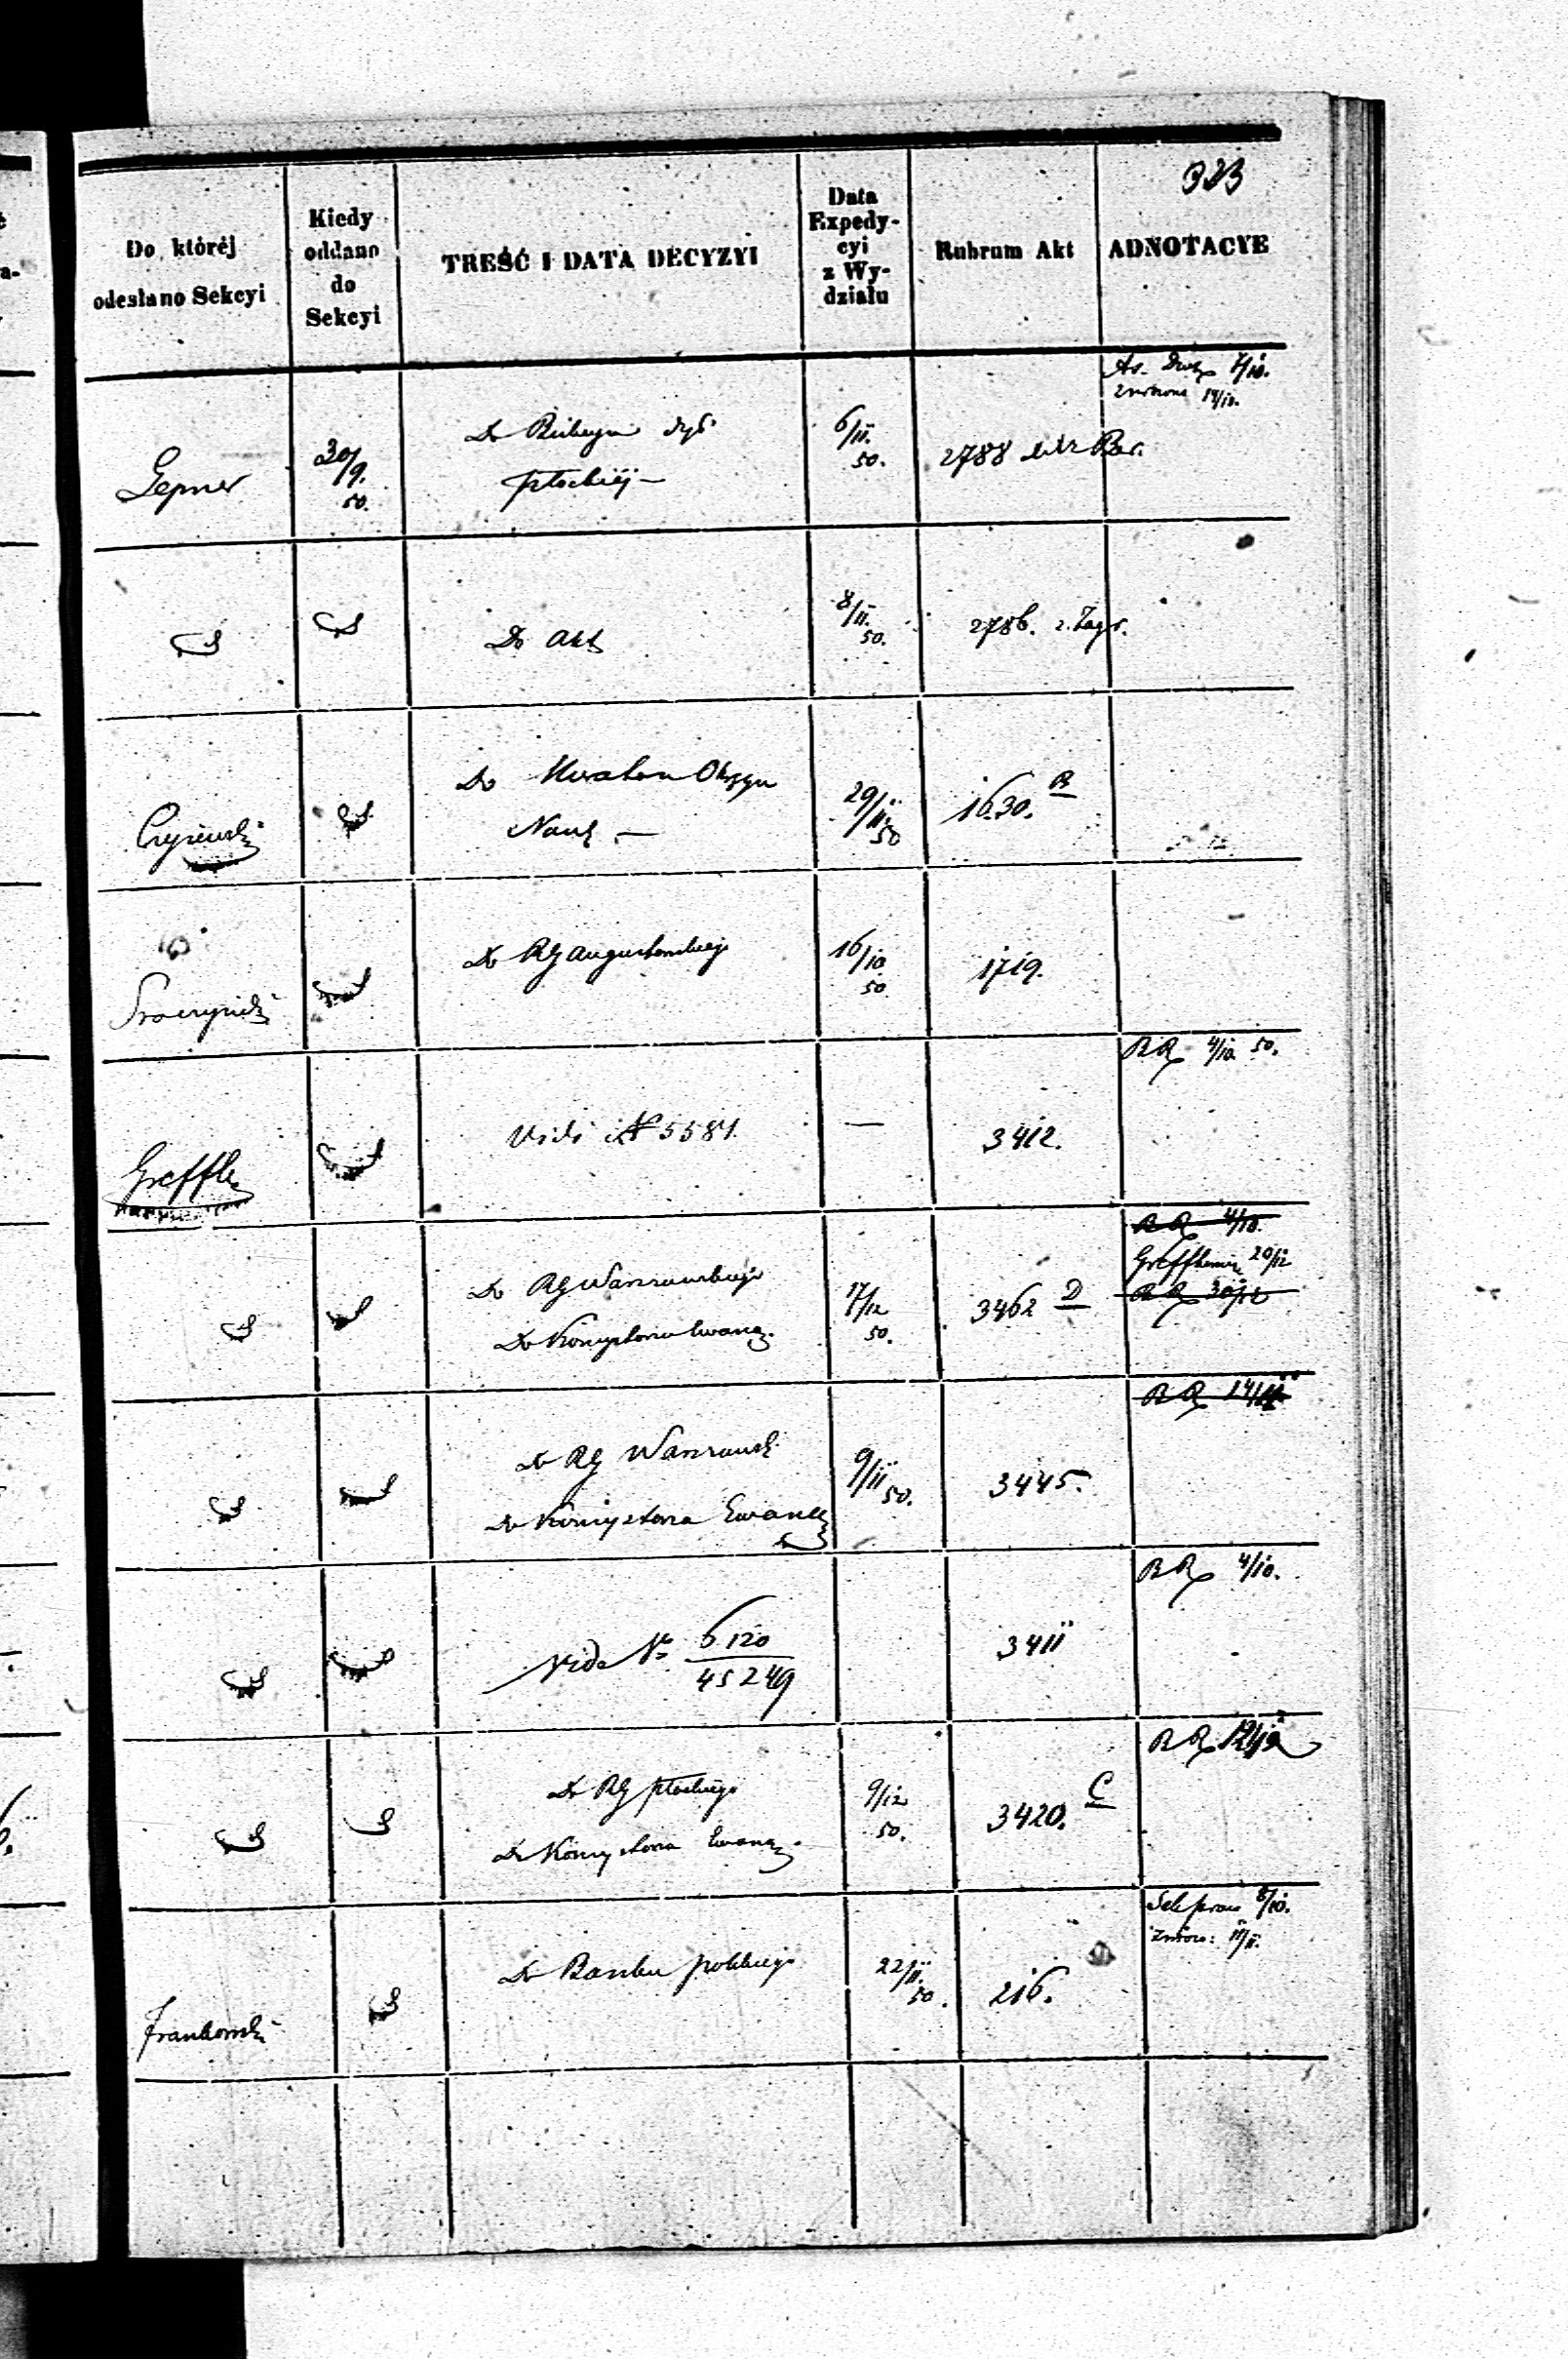 323
Do któréj
odesłano Sekcyi
Kiedy
oddano
do
Sekcyi
TREŚĆ I DATA DECYZYI
Data
Expedy-
cyi
z Wy-
działu
Rubrum Akt
ADNOTACYE
7/10.
zwrócone 14/10.
Lepner
30/9.
50.
Do
płockiéj —
6/11.
50.
2788
Do akt
8/11.
50.
2786.
Do Kuratora Okręgu
Nauk —
29/11.
50
1630. B
Do RG Augustowskiego
16/10
50
1719.
Greffke
Vide № 5584.
—
3412.
RR 4/10 50.
Do RG Warszawskiego
Do Konsystorza Ewang.
17/12
50.
3462 D
RR 4/10.
20/12
RR 30/12
Do RG Warszawsk
Do Konsystorza Ewang
9/11
50.
3445.
RR
Vide № 6120
45249
3411
RR 4/10.
Do RG płockiego
Do Konsystorza Ewang.
9/12
50.
3420. C
RR
Frankowski
Do Banku polskiego
22/11.
50.
216.
8/10.
zwróco: 11/11.